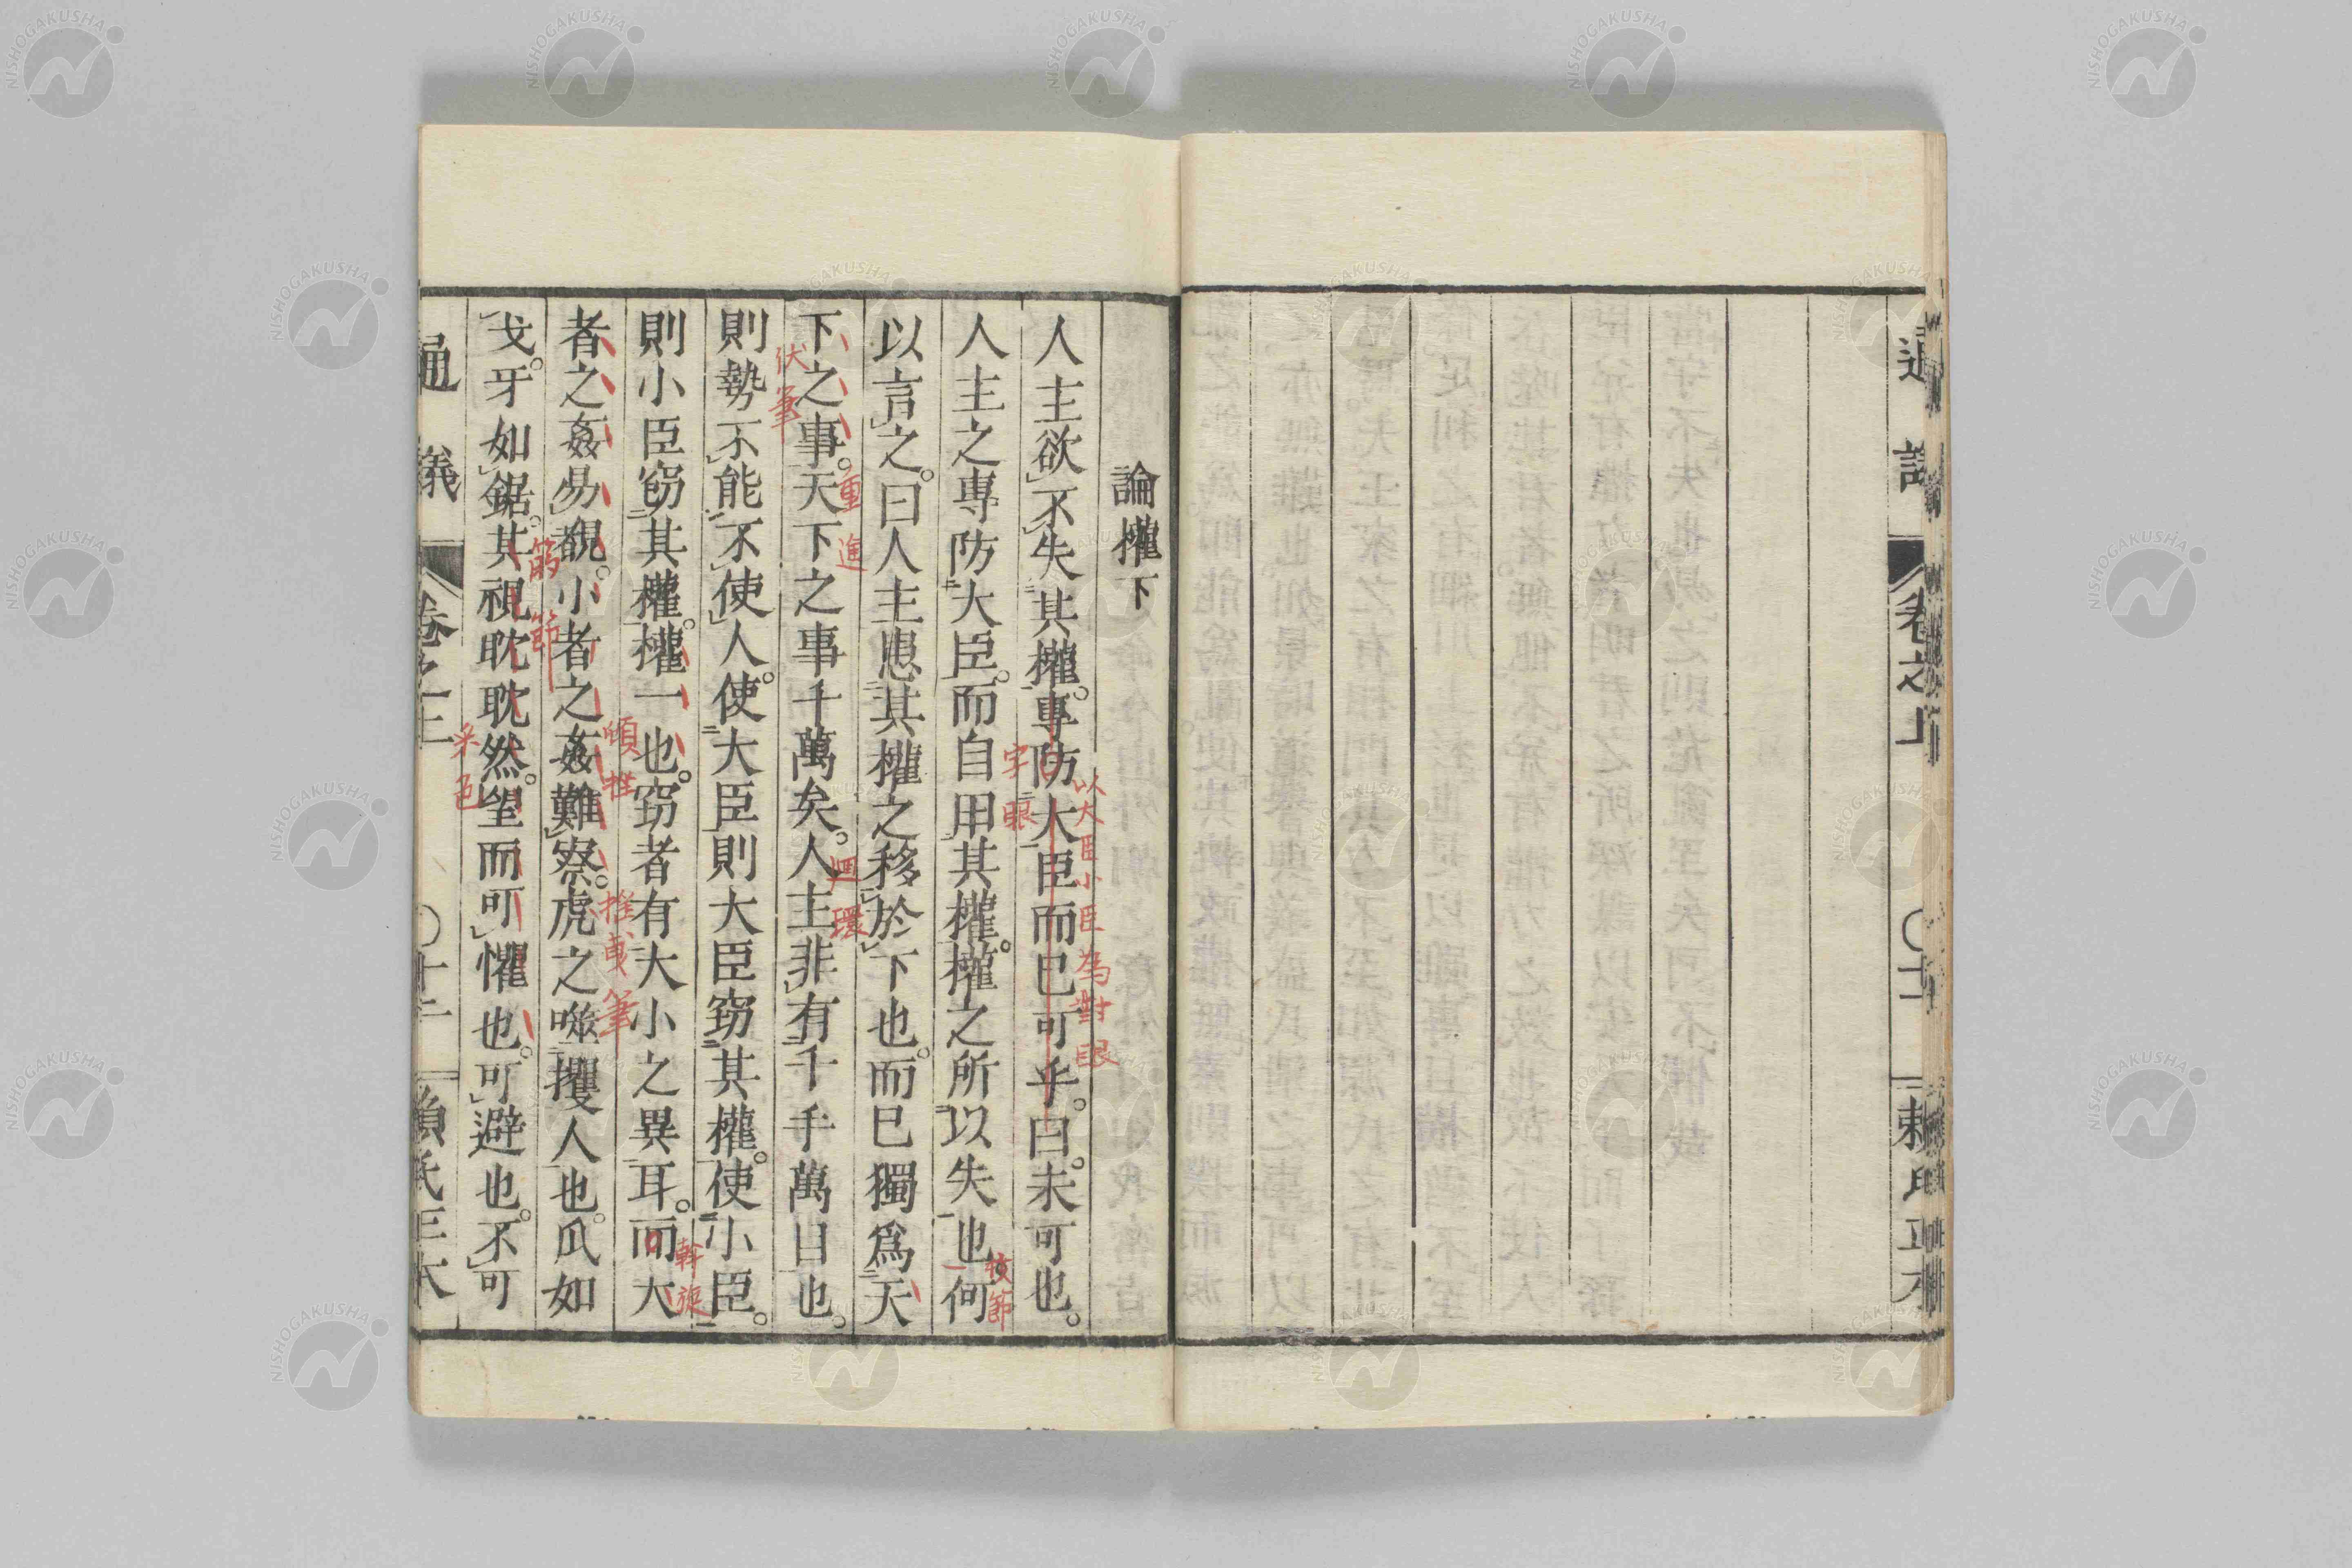 通議
卷之上
論權下
人主欲不失其權。專防大臣而已可乎。曰。未可也。
人主之專防大臣。而自用其權。權之所以失也。何
以言之。曰人主患其權之移於下也。而已獨爲天
下之事。天下之事千萬矣。人主非有千手萬目也。
則勢不能不使人。使大臣則大臣竊其權。使小臣。
則小臣竊其權。權一也。竊者有大小之異耳。而大
者之姦易覩。小者之姦難察。虎之噬攫人也。爪如
戈。牙如鋸。其視耽耽然。望而可懼也。可避也。不可
以大臣小臣為對眼
字眼
枝節
重進
廻環
伏筆
斡旋
頓挫
推曳筆
筋節
采色
通議
卷之上
〇十二
賴氏正本
NISHOGAKUSHA